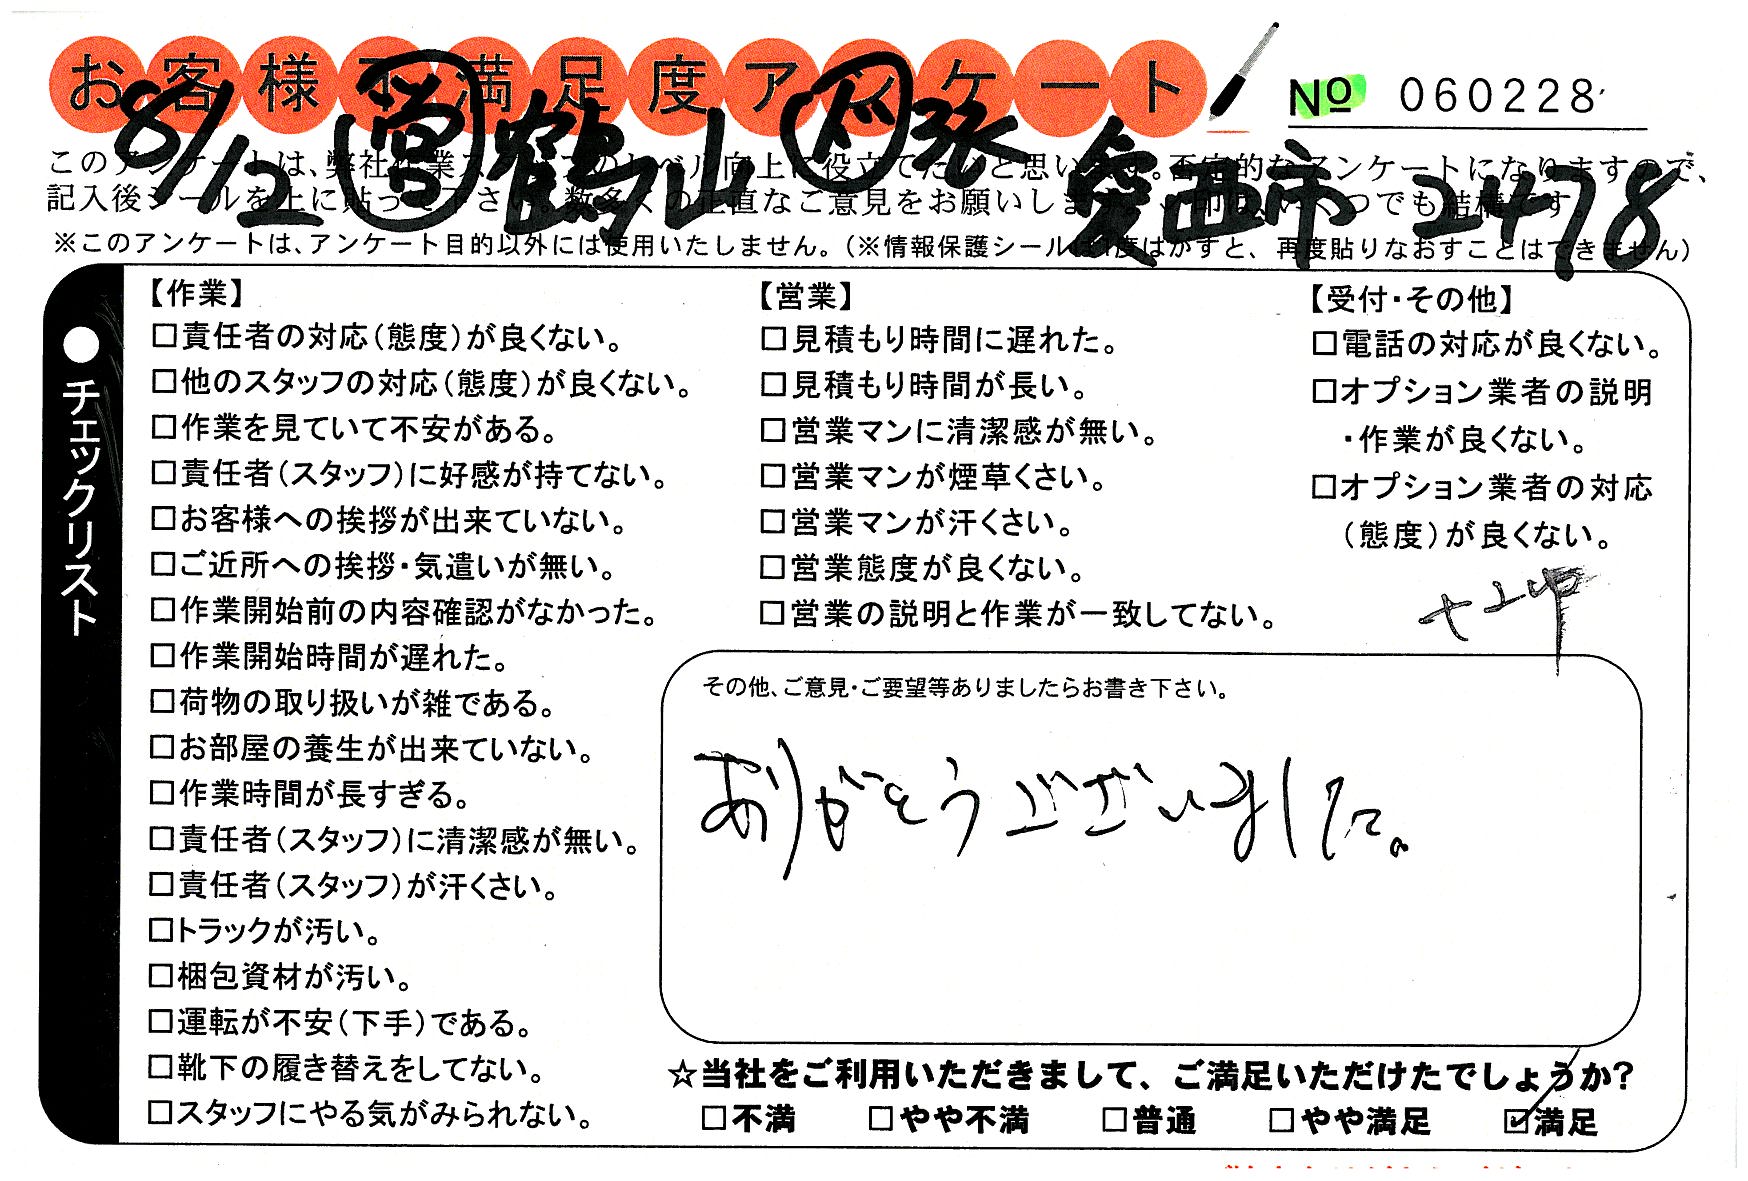 お客様不満足度アンケート
No 060228
8/12 営 鶴山 永 愛西市 2478
このアンケートは、弊社作業スタッフのレベル向上に役立てたいと思います。否定的なアンケートになりますので、
記入後シールを上に貼って下さい。数多くの正直なご意見をお願いします。
※このアンケートは、アンケート目的以外には使用いたしません。(※情報保護シールは1度はがすと、再度貼りなおすことはできません)
●チェックリスト
【作業】
□責任者の対応(態度)が良くない。
□他のスタッフの対応(態度)が良くない。
□作業を見ていて不安がある。
□責任者(スタッフ)に好感が持てない。
□お客様への挨拶が出来ていない。
□ご近所への挨拶・気遣いが無い。
□作業開始前の内容確認がなかった。
□作業開始時間が遅れた。
□荷物の取り扱いが雑である。
□お部屋の養生が出来ていない。
□作業時間が長すぎる。
□責任者(スタッフ)に清潔感が無い。
□責任者(スタッフ)が汗くさい。
□トラックが汚い。
□梱包資材が汚い。
□運転が不安(下手)である。
□靴下の履き替えをしてない。
□スタッフにやる気がみられない。
【営業】
□見積もり時間に遅れた。
□見積もり時間が長い。
□営業マンに清潔感が無い。
□営業マンが煙草くさい。
□営業マンが汗くさい。
□営業態度が良くない。
□営業の説明と作業が一致してない。
【受付・その他】
□電話の対応が良くない。
□オプション業者の説明
・作業が良くない。
□オプション業者の対応
(態度)が良くない。
その他、ご意見・ご要望等ありましたらお書き下さい。
ありがとうございました。
☆当社をご利用いただきまして、ご満足いただけたでしょうか?
□不満 □やや不満 □普通 □やや満足 ☑満足